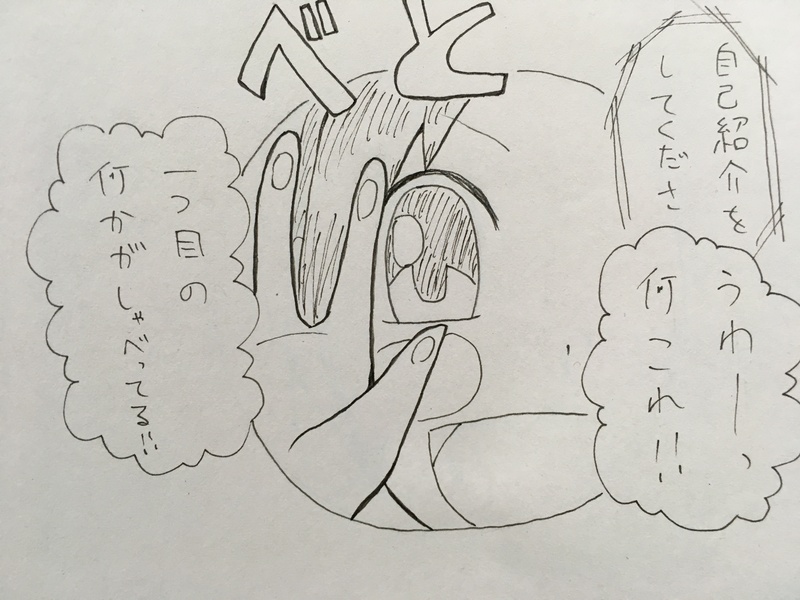 自己紹介を
してくださ
うわー、
何これ!!
べと
一つ目の
何かがしゃべってる!!